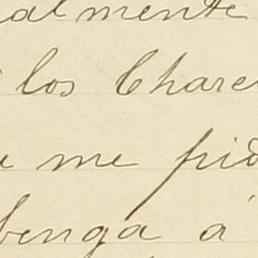 almente
los Chare
me pid
benga á